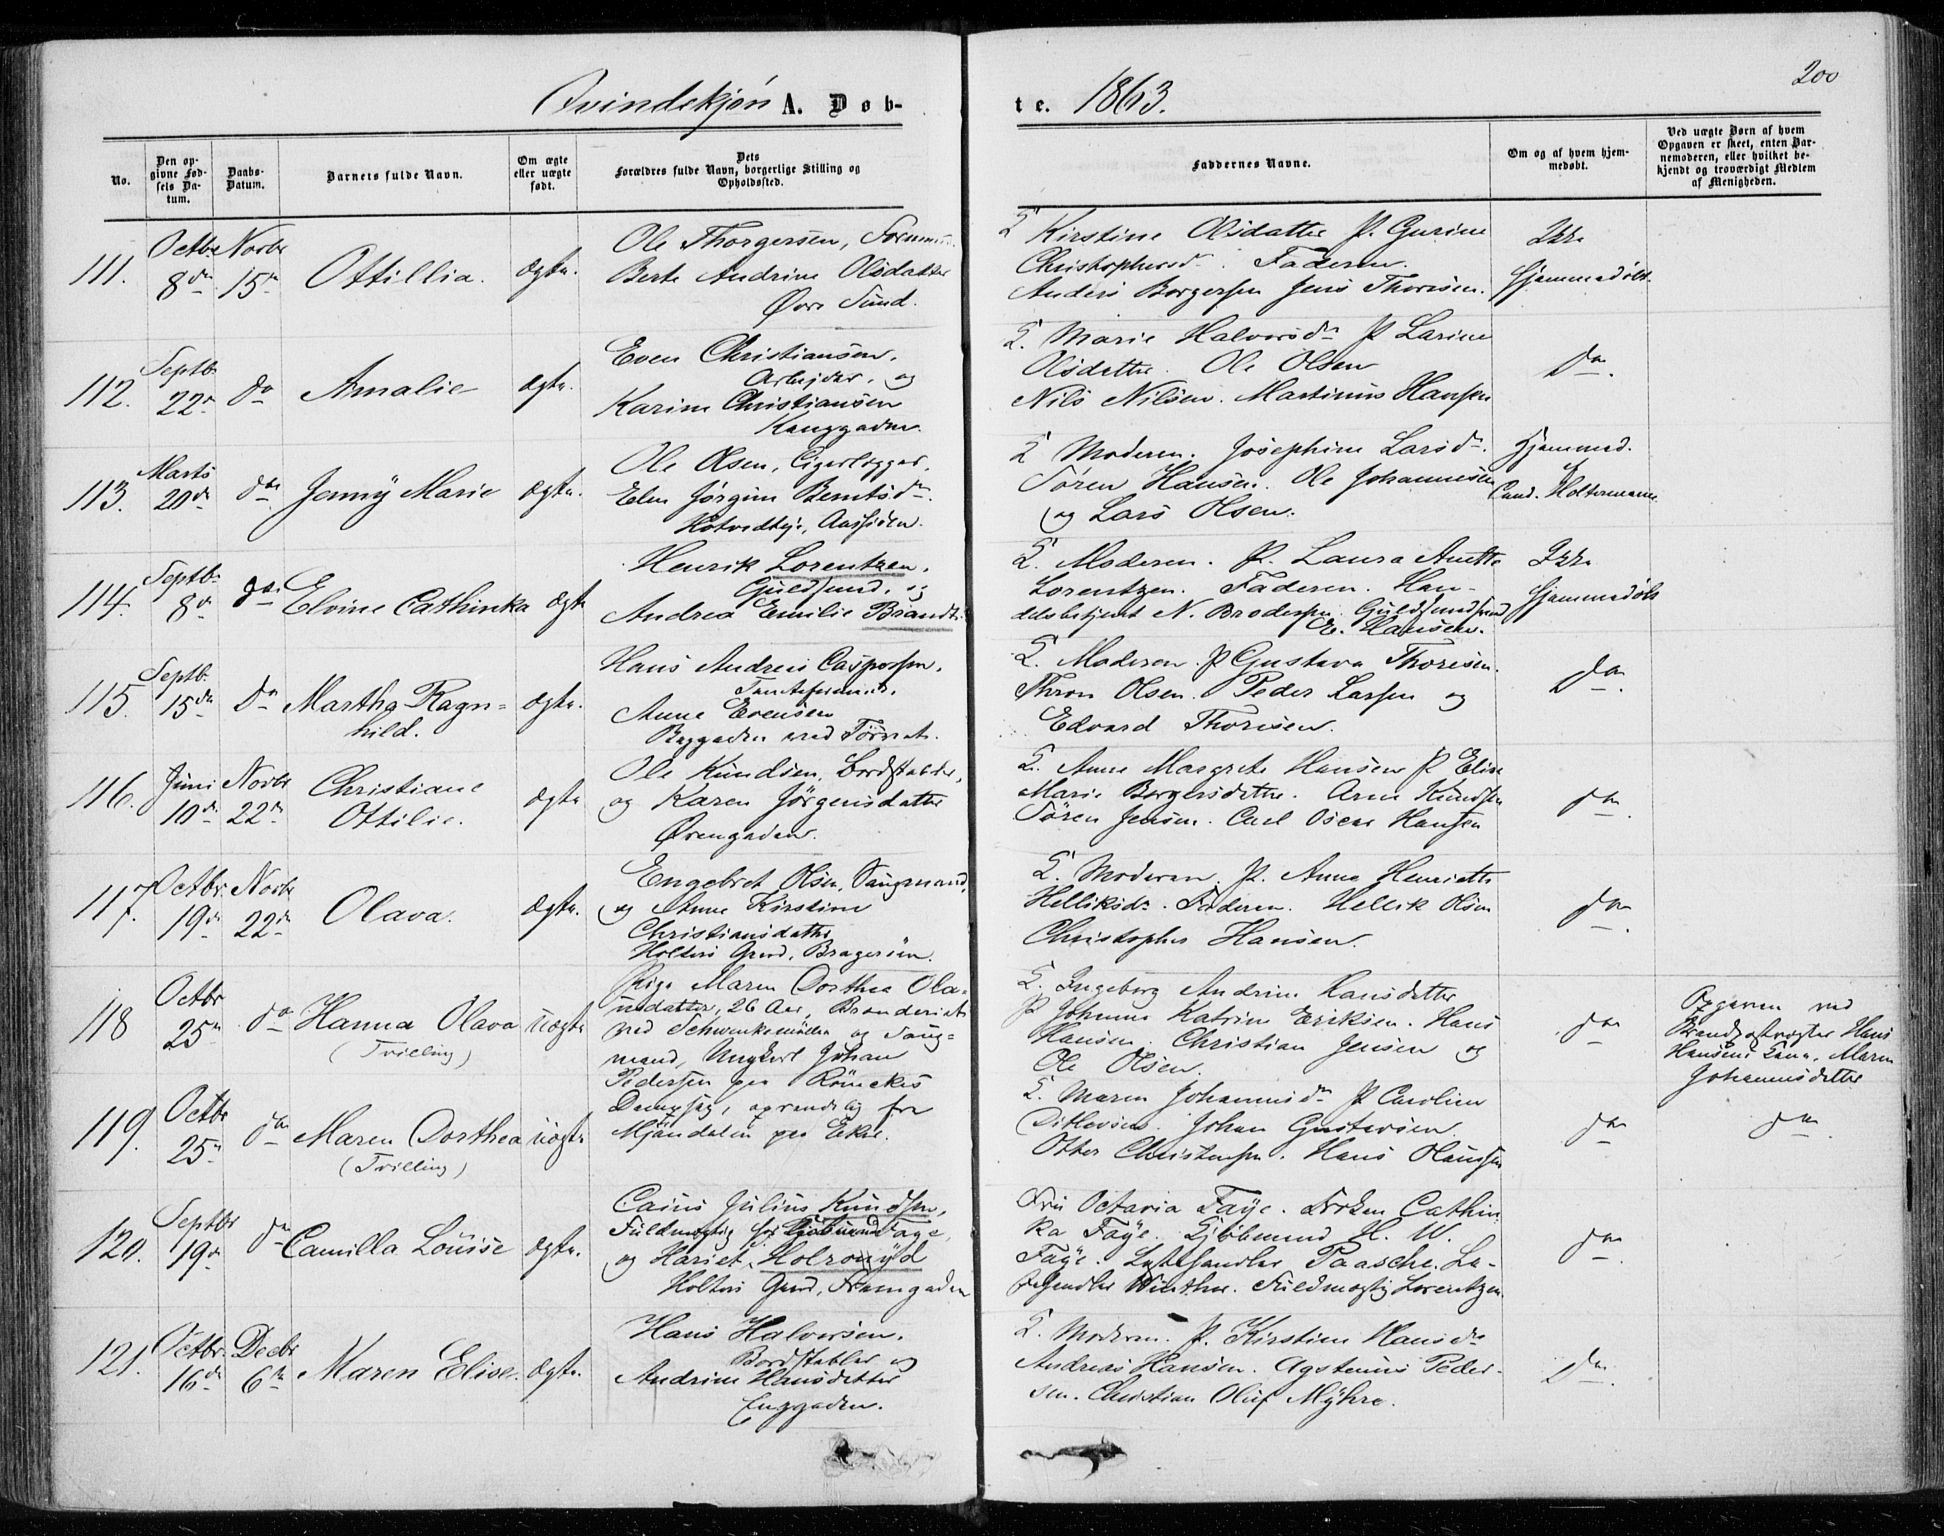 Qvindekjøn A. Døb-
te. 1863.
200
No.
Den op-
givne Fød-
sels Da-
tum.
Daabs-
Datum.
Barnets fulde Navn.
Om ægte
eller uægte
født.
Dets
Forældres fulde Navn, borgerlige Stilling og
Opholdssted.
Faddernes Navne.
Om og af hvem hjem-
medøbt.
Ved uægte Børn af hvem
Opgaven er skeet, enten Bar-
nemoderen, eller hvilket be-
kjendt og troværdigt Medlem
af Menigheden.
111.
Octbr
8de
Novbr
15de
Ottillia.
ægte.
Ole Thorgersen,
Berte Andrine Olsdatter
Øvre Sund.
Kirstine Olsdatter P. Gurine
Christophersd. Faderen.
Anders Borgersen Jens Thoresen.
Ikke
Hjemmedøbt.
112.
Septb.
22
do
Amalie
ægte.
Even Christiansen,
Arbejder, og
Karine Christiansen
Kanggaden.
Marie Halvorsd. P Larine
Olsdatter. Ole Olsen
Nils Nilsen. Martinius Hansen
do.
113.
Marts
20de
do.
Jenny Marie
ægte.
Ole Olsen, Cigarlægger,
Elen Jørgine Berntsd.
Hotvedteje, Aassiden.
Moderen. Josephine Larsd.
Søren Hansen. Ole Johannesen
og Lars Olsen.
Hjemmed.
Cand. Holtermann.
114.
Septb.
8de
do
Elvine Cathinka
ægte
Henrik Lorentzen,
Guldsmed, og
Andrea Emilie Brandt.
Moderen. P. Laura Anette
Lorentzen. Faderen. Han-
delsbetjent N. Brodersen. Guldsmedsvend
E. Hansen.
Ikke
Hjemmedøbt
115.
Septb.
15de
do
Martha Ragn-
hild.
ægte.
Hans Andreas Caspersen,
Anne Evensen
Baggaden ved
Moderen. P Gustava Thoresen.
Thron Olsen. Peder Larsen og
Edvard Thoresen.
do.
116.
Juni
10de
Novbr
22de
Christiane
Ottilie.
ægte
Ole Knudsen, Bordstabler,
og Karen Jørgensdatter
Ørengaden.
Anne Margrete Hansen P Elise
Marie Borgersdatter. Arne Knudsen
Søren Jensen. Carl Oscar Hansen
do.
117.
Octbr.
19de
Novbr
22de
Olava.
ægte.
Engebret Olsen, Saugmand,
og Anne Kirstine
Christiansdatter
Holters Gaard, Bragerøen.
Moderen. P. Anne Henriette
Helliksd. Faderen. Hellik Olsen
Christopher Hansen.
do.
118
Octbr
25de
do
Hanna Olava
(Tvilling)
uægte
Pige Maren Dorthea Ola-
usdatter, 26 Aar, Brænderiet
ved Schwenkemøllen og Saug-
mand, Ungkarl Johan
Pedersen paa Rönekes
Dampsag, oprindelig fra
Mjöndalen paa Eker.
Ingeborg Andrine Hansdatter
P Johanne Katrine Eriksen. Hans
Hansen. Christian Jensen og
Ole Olsen.
do
Opgaven ved
Hans
Hansens Kone, Maren
Johannesdatter
119.
Octbr
25de
do
Maren Dorthea
(Tvilling)
uægte
Maren Johannesd. P Caroline
Ditlevsen. Johan Gustavsen
Otter Christensen. Hans Olaussen
do
do.
120.
Septbr
19de
do
Camilla Louise
ægte.
Caius Julius Knudsen,
Fuldmægtig hos Faye,
og Hariet Holroyd
Holters Gaard, Strømgaden
Fru Octavia Faye. Frøken Cathin-
ka Faye. Kjøbmand H. W.
Faye. Lysthandler Paasche. La-
Winther. Fuldmægtig Lorentzen.
do.
121.
Octbr.
16de
Decbr
6te
Maren Elise.
ægte.
Hans Halvorsen,
Bordstabler og
Andrine Hansdatter
Enggaden.
Moderen. P. Kirstine Hansd.
Andreas Hansen. Agstinus Peder-
sen. Christian Oluf Myhre.
do.